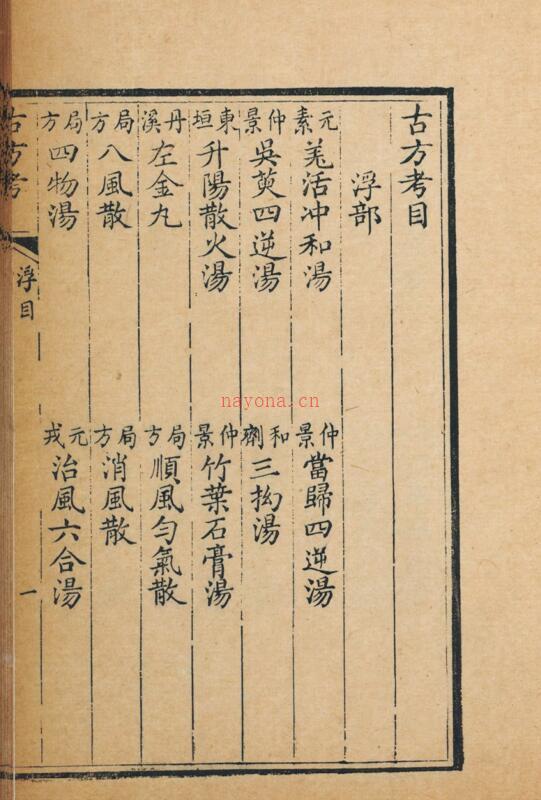 古方考目
浮部
元素 羌活冲和湯
仲景 當歸四逆湯
仲景 吳萸四逆湯
和劑 三抝湯
東垣 升陽散火湯
仲景 竹葉石膏湯
丹溪 左金丸
局方 順風勻氣散
局方 八風散
局方 消風散
局方 四物湯
元戎 治風六合湯
古方考
浮目
一
nayona.cn